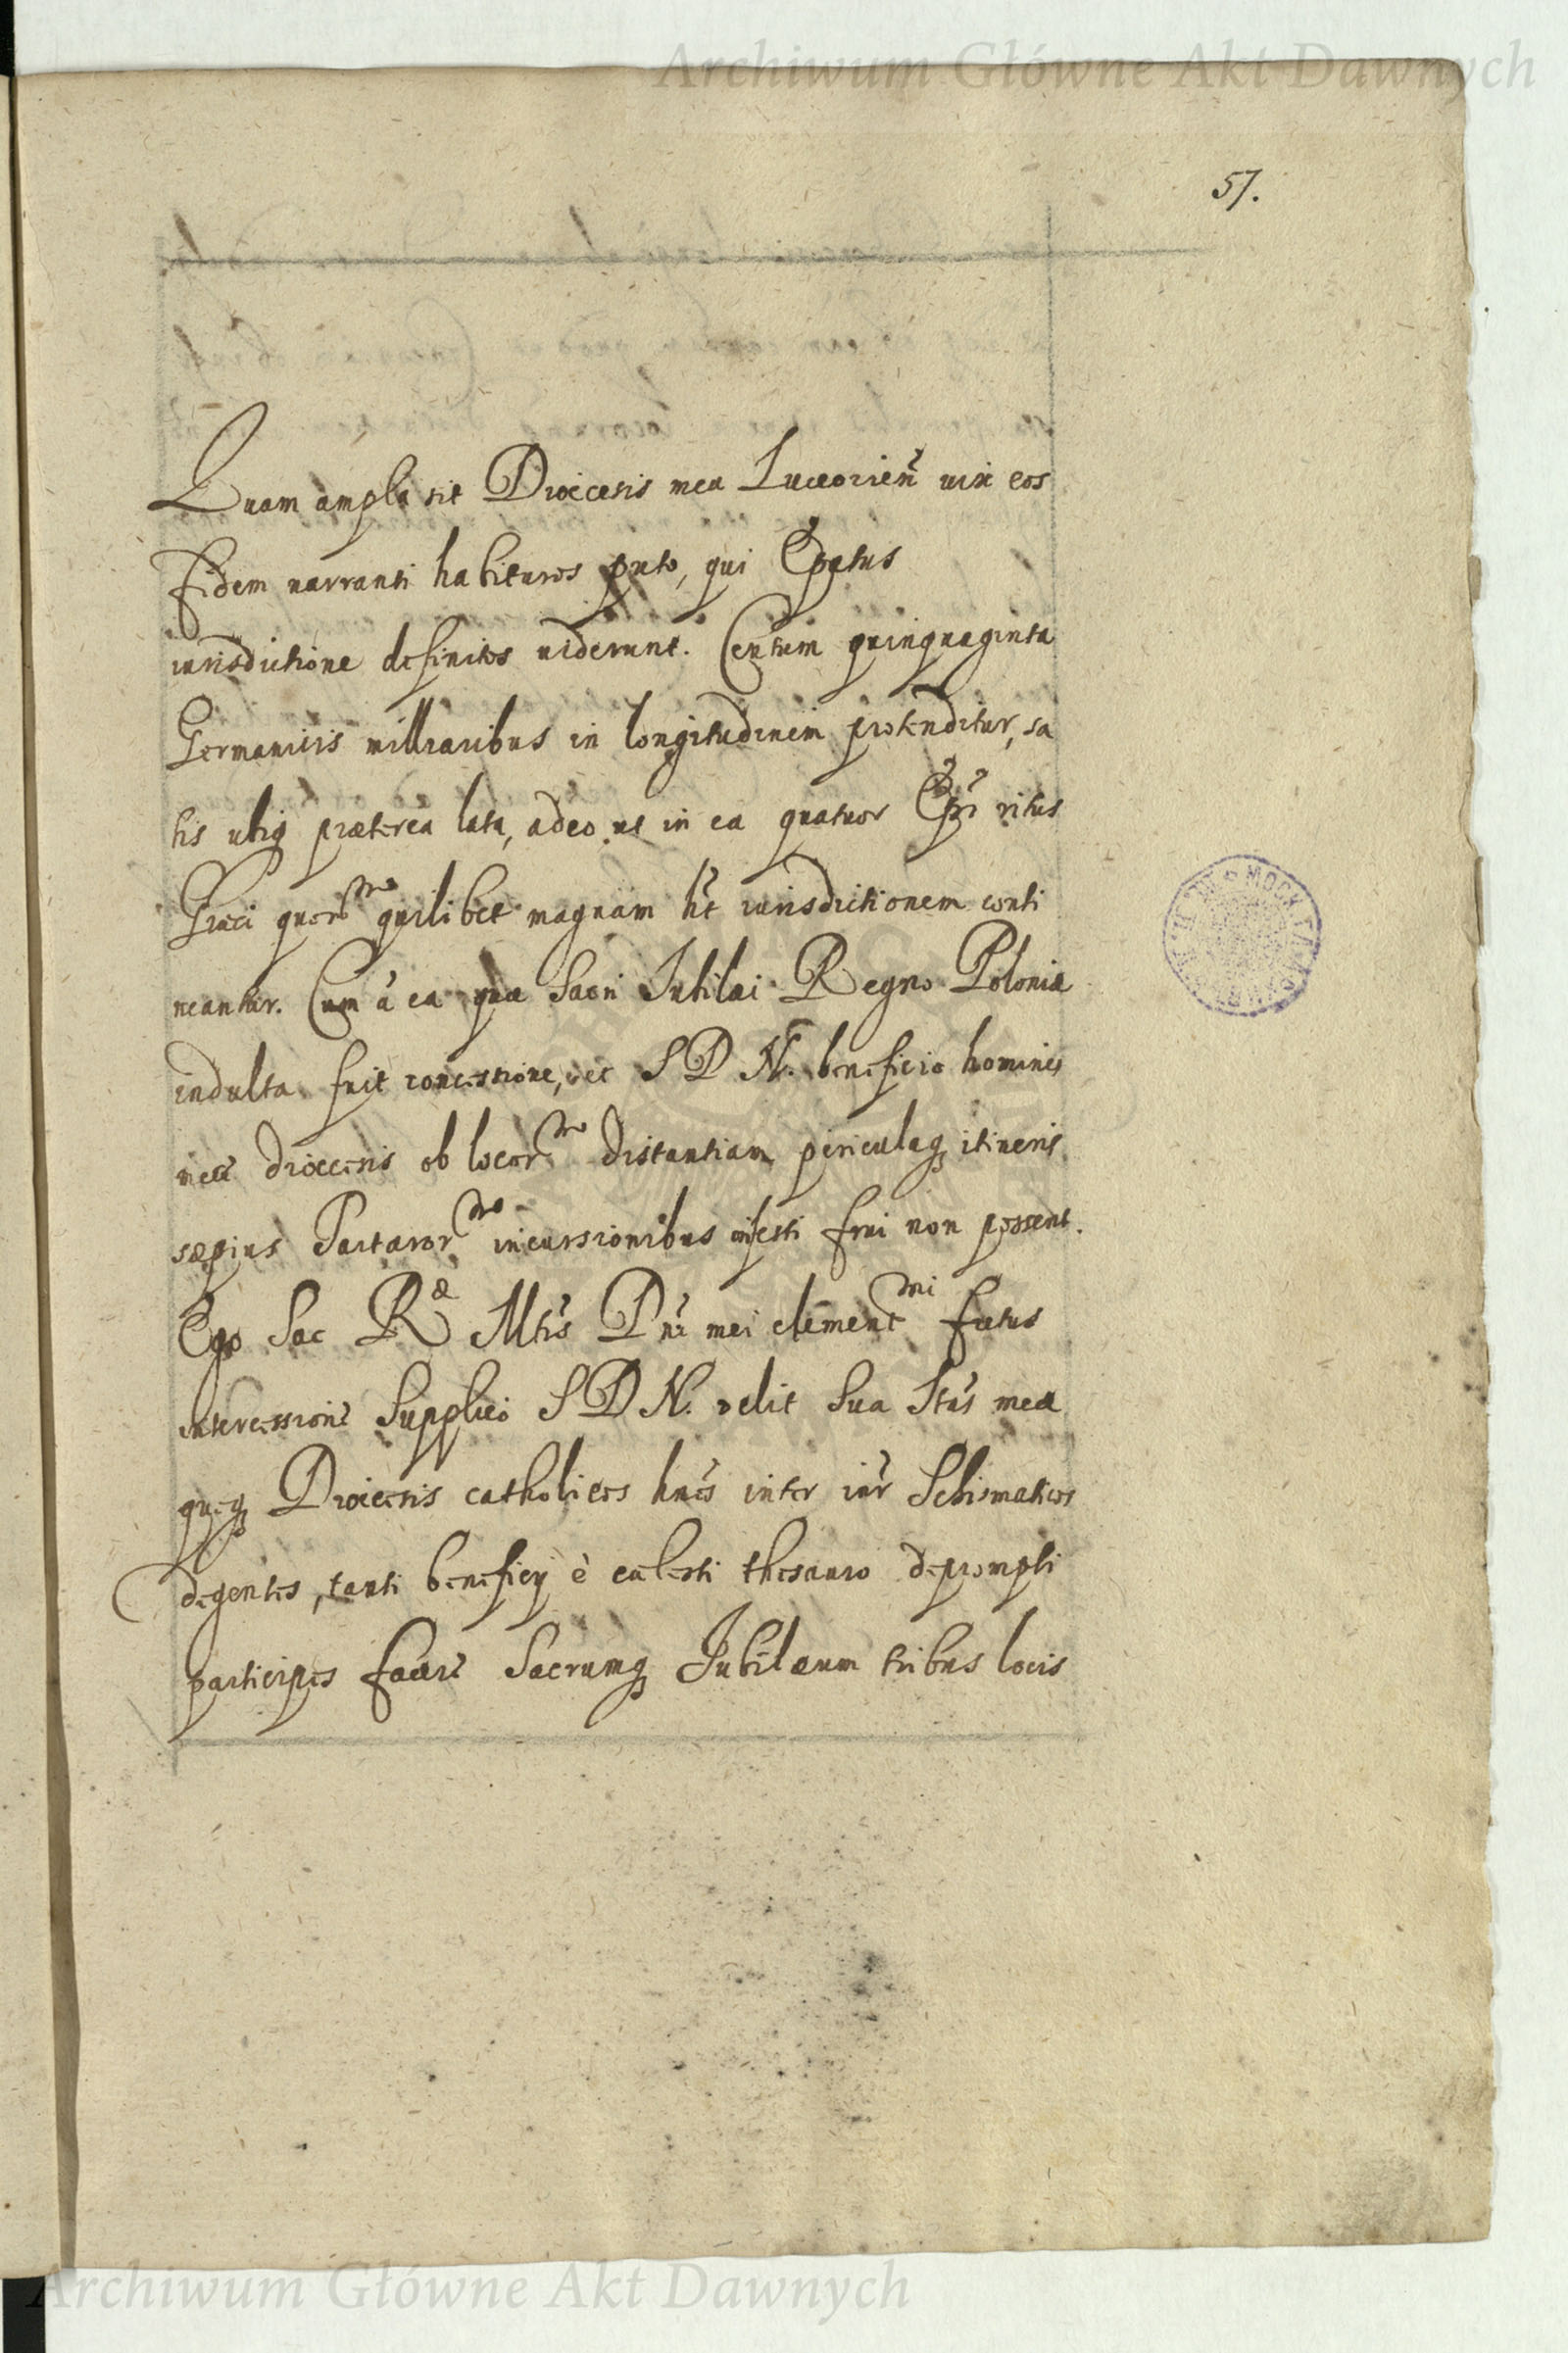 Archiwum Główne Akt Dawnych
57.
Quam ampla sit Dioecesis mea Luceorien̄ uix eos
Fidem narranti habituros puto, qui Ep̃atus
iurisdictione definitos uiderunt. Centum quinquaginta
Germanicis milliaribus in longitudinem protenditur, sa
tis utiq præterea lata, adeo ut in ea quatuor Ep̃i ritus
Græci quor quilibet magnam ht iurisdictionem conti
neantur. Cum à ea quæ Sacri Iubilæi Regno Poloniæ
indulta fuit concessione, et S D N. beneficio homines
meæ dioecesis ob locor distantiam periculaq itineris
sæpius Tartaror incursionibus infesti frui non possent.
Ego Sac R^æ Mtis Dn̄i mei clement^mi fretus
intercessione Supplico S D N. velit Sua Stas meæ
quoq Dioecesis catholicos hnes inter Schismaticos
degentes, tanti beneficij è cælesti thesauro deprompti
participes facere Sacrumq Iubilæum tribus locis
Archiwum Główne Akt Dawnych